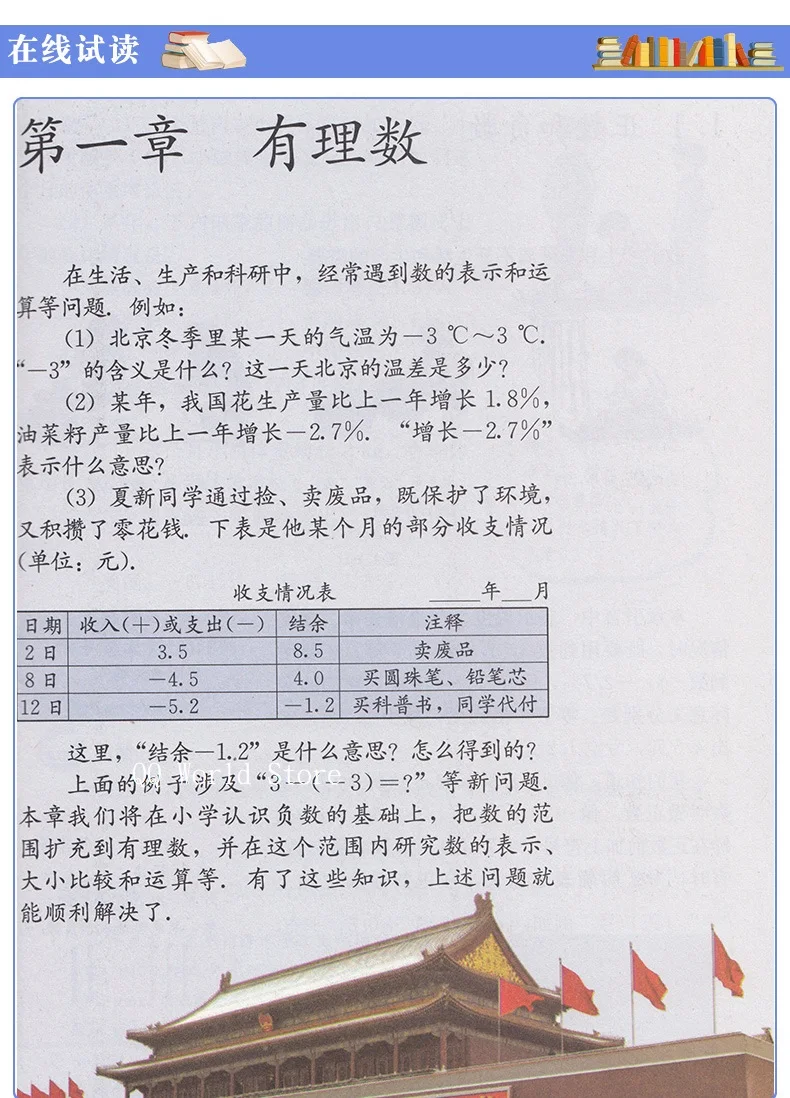 在线试读
第一章 有理数
在生活、生产和科研中，经常遇到数的表示和运
算等问题．例如：
(1) 北京冬季里某一天的气温为－3 ℃～3 ℃．
“－3” 的含义是什么？这一天北京的温差是多少？
(2) 某年，我国花生产量比上一年增长 1.8%，
油菜籽产量比上一年增长－2.7%．“增长－2.7%”
表示什么意思？
(3) 夏新同学通过捡、卖废品，既保护了环境，
又积攒了零花钱．下表是他某个月的部分收支情况
(单位：元)．
收支情况表 _____年___月
日期 收入(＋)或支出(－) 结余 注释
2 日 3.5 8.5 卖废品
8 日 －4.5 4.0 买圆珠笔、铅笔芯
12 日 －5.2 －1.2 买科普书，同学代付
这里，“结余－1.2” 是什么意思？怎么得到的？
上面的例子涉及 “3－(－3)＝?” 等新问题．
QQ World Store
本章我们将在小学认识负数的基础上，把数的范
围扩充到有理数，并在这个范围内研究数的表示、
大小比较和运算等．有了这些知识，上述问题就
能顺利解决了．